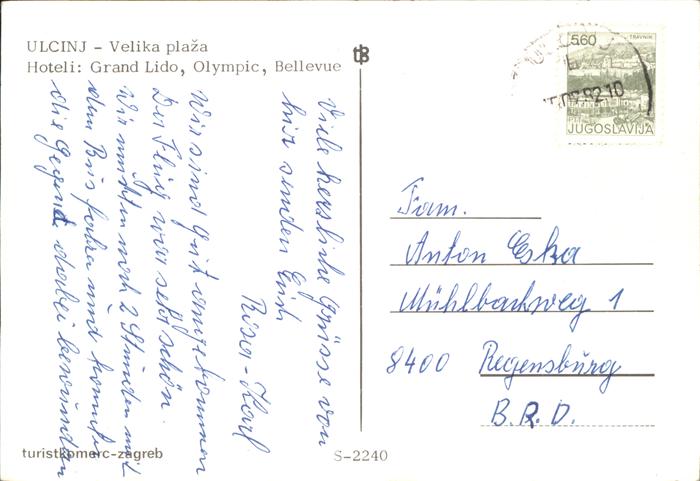 ULCINJ – Velika plaža
Hoteli: Grand Lido, Olympic, Bellevue
Viele herzliche Grüsse von
hier senden Euch
Rosa - Karl
Wir sind gut angekommen
Der Flug war sehr schön.
Wir mußten noch 2 Stunden mit
dem Bus fahren und konnten
die Gegend dabei bewundern
turistkomerc-zagreb
S-2240
5.60
TRAVNIK
JUGOSLAVIJA
82.10
Fam.
Anton Eska
Mühlbachweg 1
8400 Regensburg
B.R.D.